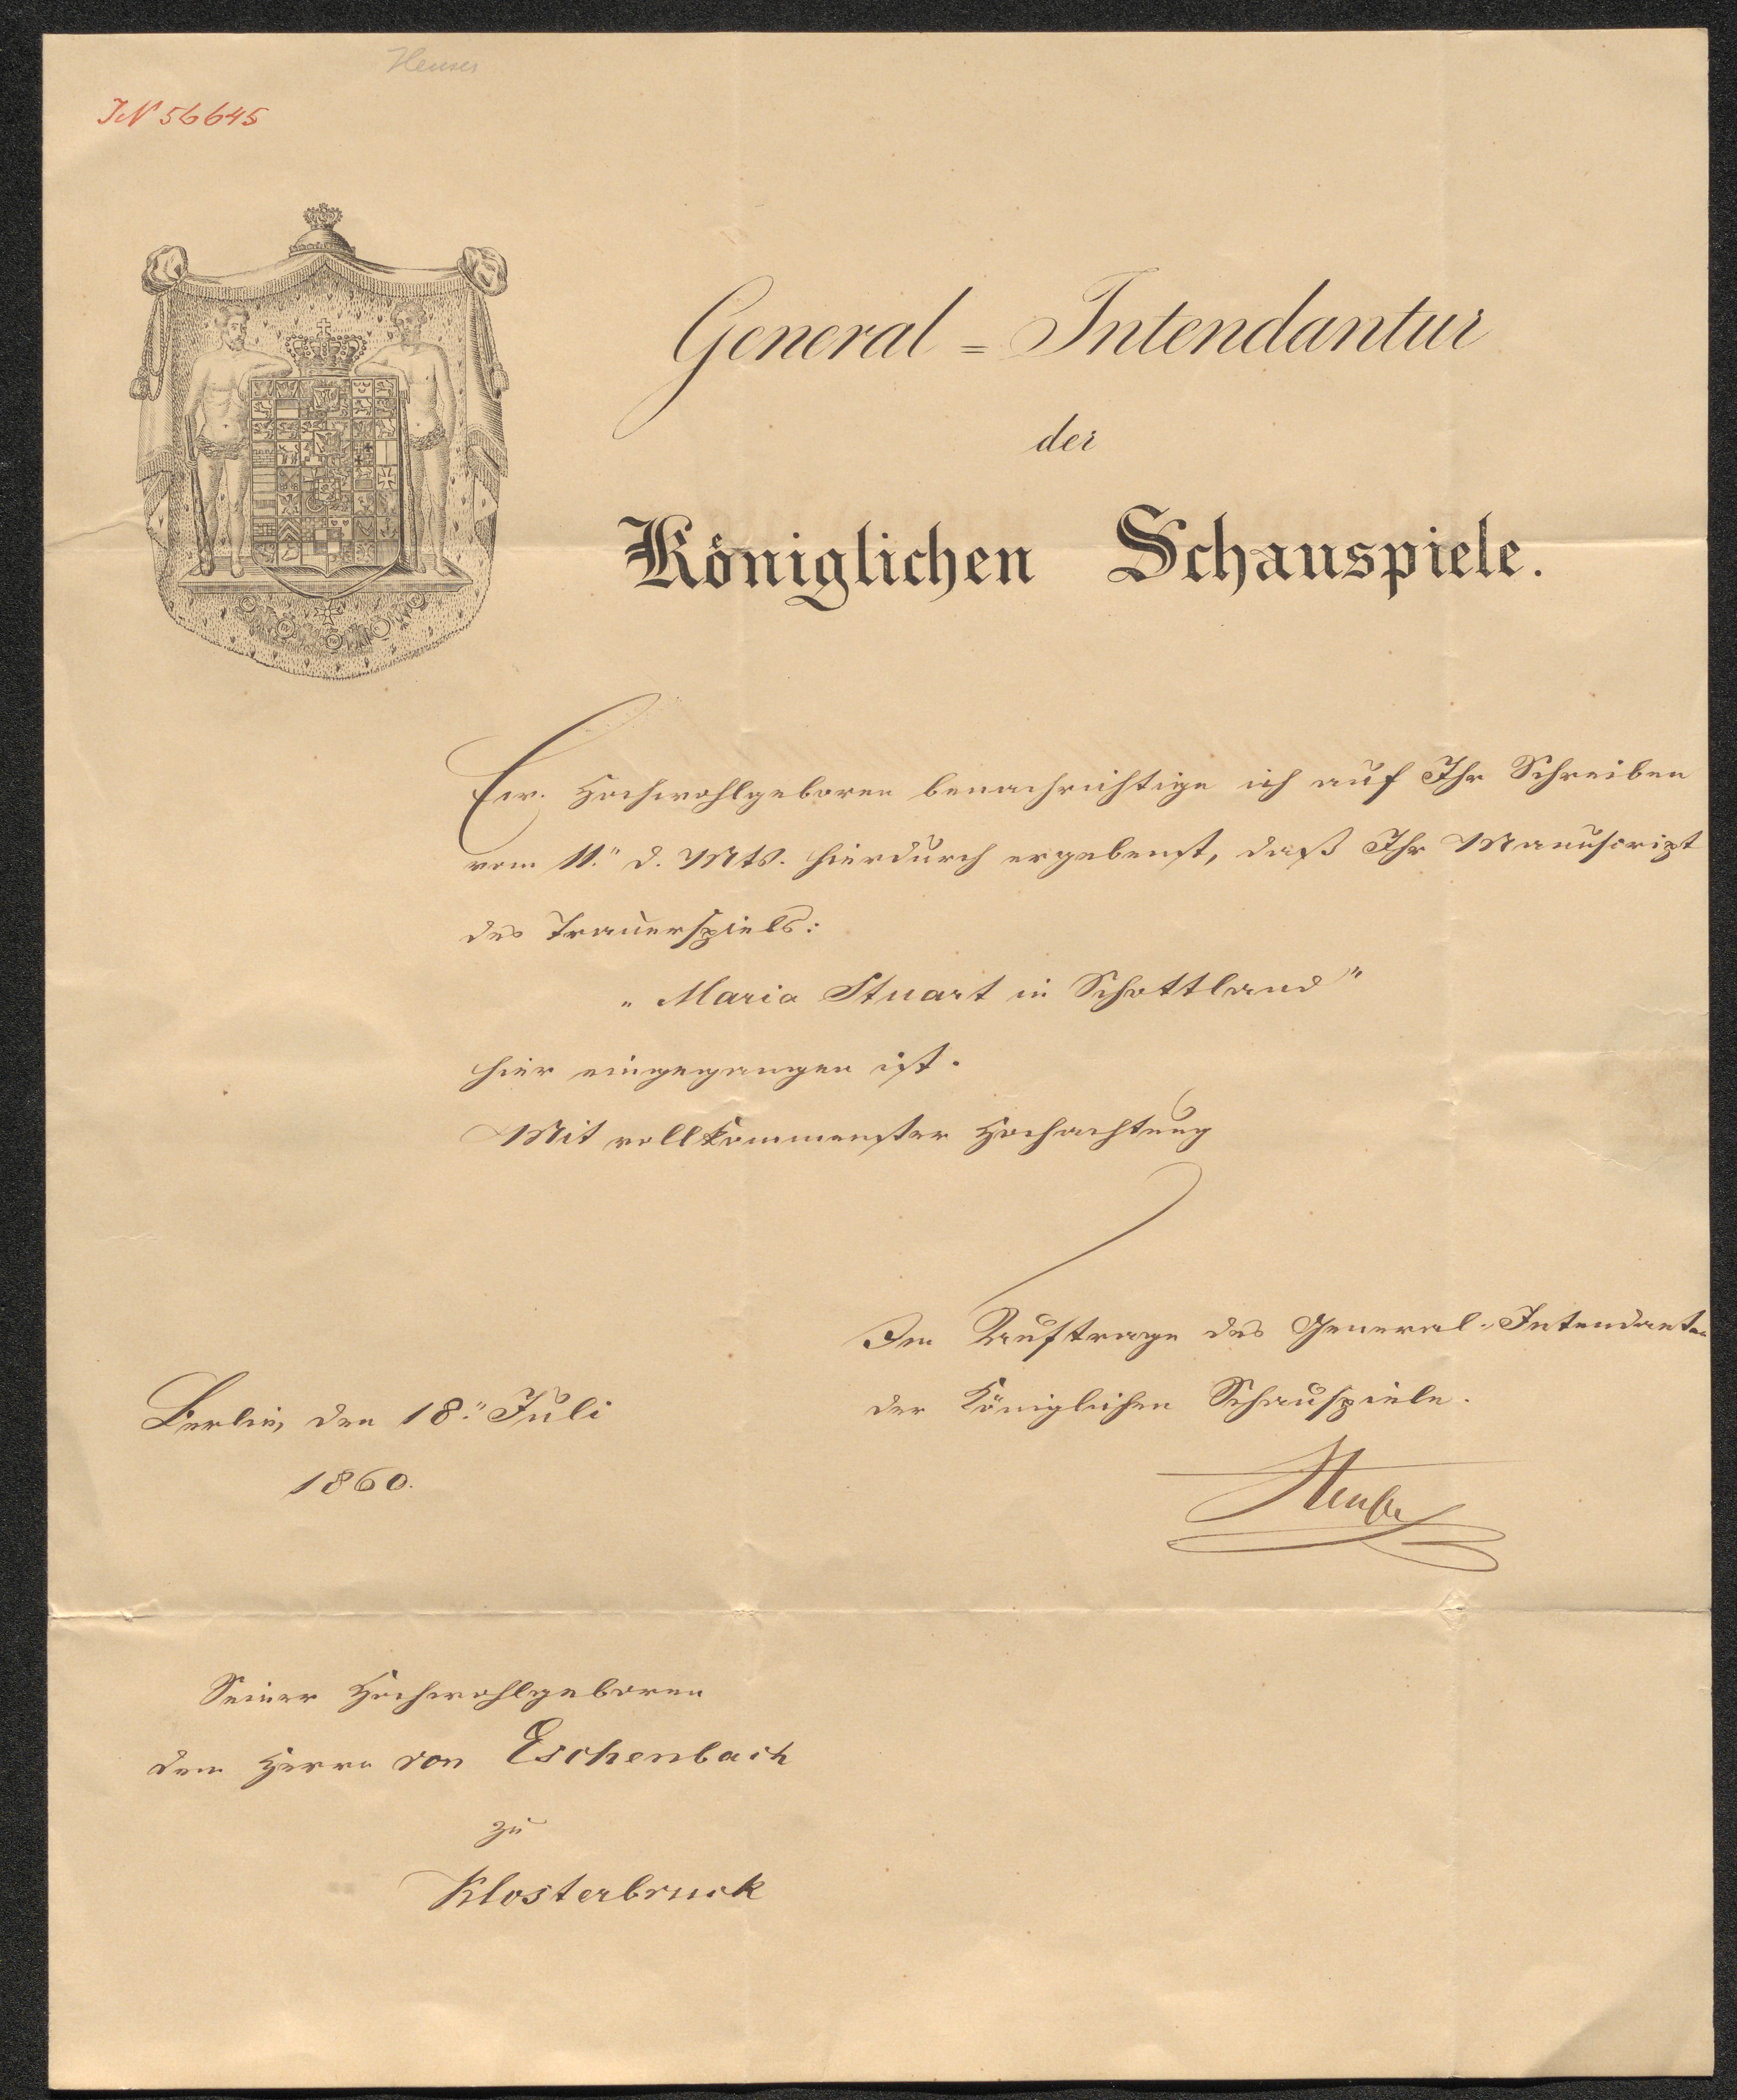 Heuser
IN 56645
General = Intendantur
der
Königlichen Schauspiele.
Ew. Hochwohlgeboren benachrichtige ich auf Ihr Schreiben
vom 11." d. Mts. hierdurch ergebenst, daß Ihr Manuscript
des Trauerspiels:
„Maria Stuart in Schottland"
hier eingegangen ist.
Mit vollkommenster Hochachtung
Im Auftrage des General-Intendanten
der Königlichen Schauspiele.
Berlin, den 18." Juli
1860.
Seiner Hochwohlgeboren
dem Herrn von Eschenbach
zu
Klosterbruck